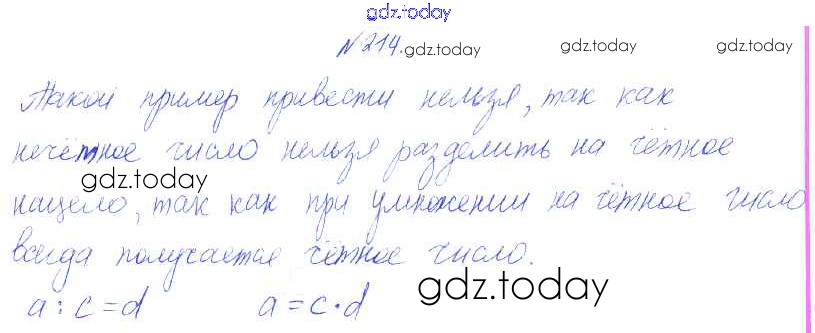 gdz.today
№214. gdz.today gdz.today gdz.today
Такой пример привести нельзя, так как
нечётное число нельзя разделить на чётное
gdz.today
нацело, так как при умножении на чётное число
всегда получается чётное число.
a : c = d a = c · d gdz.today